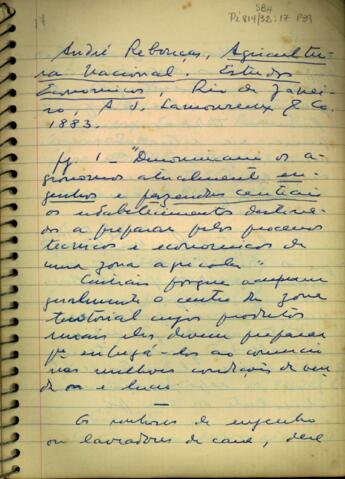 SB4
Pi 814/32:17 P09
17
André Rebouças, Agricultu-
ra Nacional. Estudos
Economicos, Rio de Janei-
ro, A. J. Lamoureux & Co.
1883.
pg. 1 - "Denominam os a-
gronomos atualmente en-
genhos e fazendas centrais
os estabelecimentos destina-
dos a preparar pelos processos
tecnicos e economicos de
uma zona agricola"
Centrais porque ocupam
geralmente o centro da zona
territorial cujos produtos
rurais eles devem preparar
pª entregá-los ao comercio
nas melhores condições de ven-
da e lucro.
Os senhores de engenho
ou lavradores de cana, diz